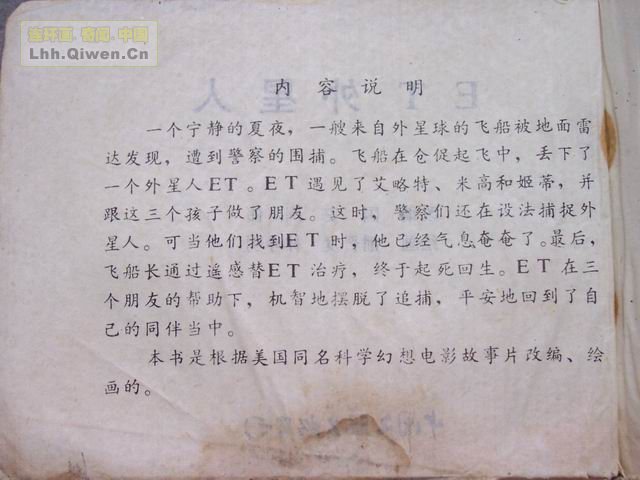 连环画.奇闻.中国
Lhh.Qiwen.Cn
ET外星人
内容说明
一个宁静的夏夜，一艘来自外星球的飞船被地面雷
达发现，遭到警察的围捕。飞船在仓促起飞中，丢下了
一个外星人ET。ET遇见了艾略特、米高和姬蒂，并
跟这三个孩子做了朋友。这时，警察们还在设法捕捉外
星人。可当他们找到ET时，他已经气息奄奄了。最后，
飞船长通过遥感替ET治疗，终于起死回生。ET在三
个朋友的帮助下，机智地摆脱了追捕，平安地回到了自
己的同伴当中。
本书是根据美国同名科学幻想电影故事片改编、绘
画的。